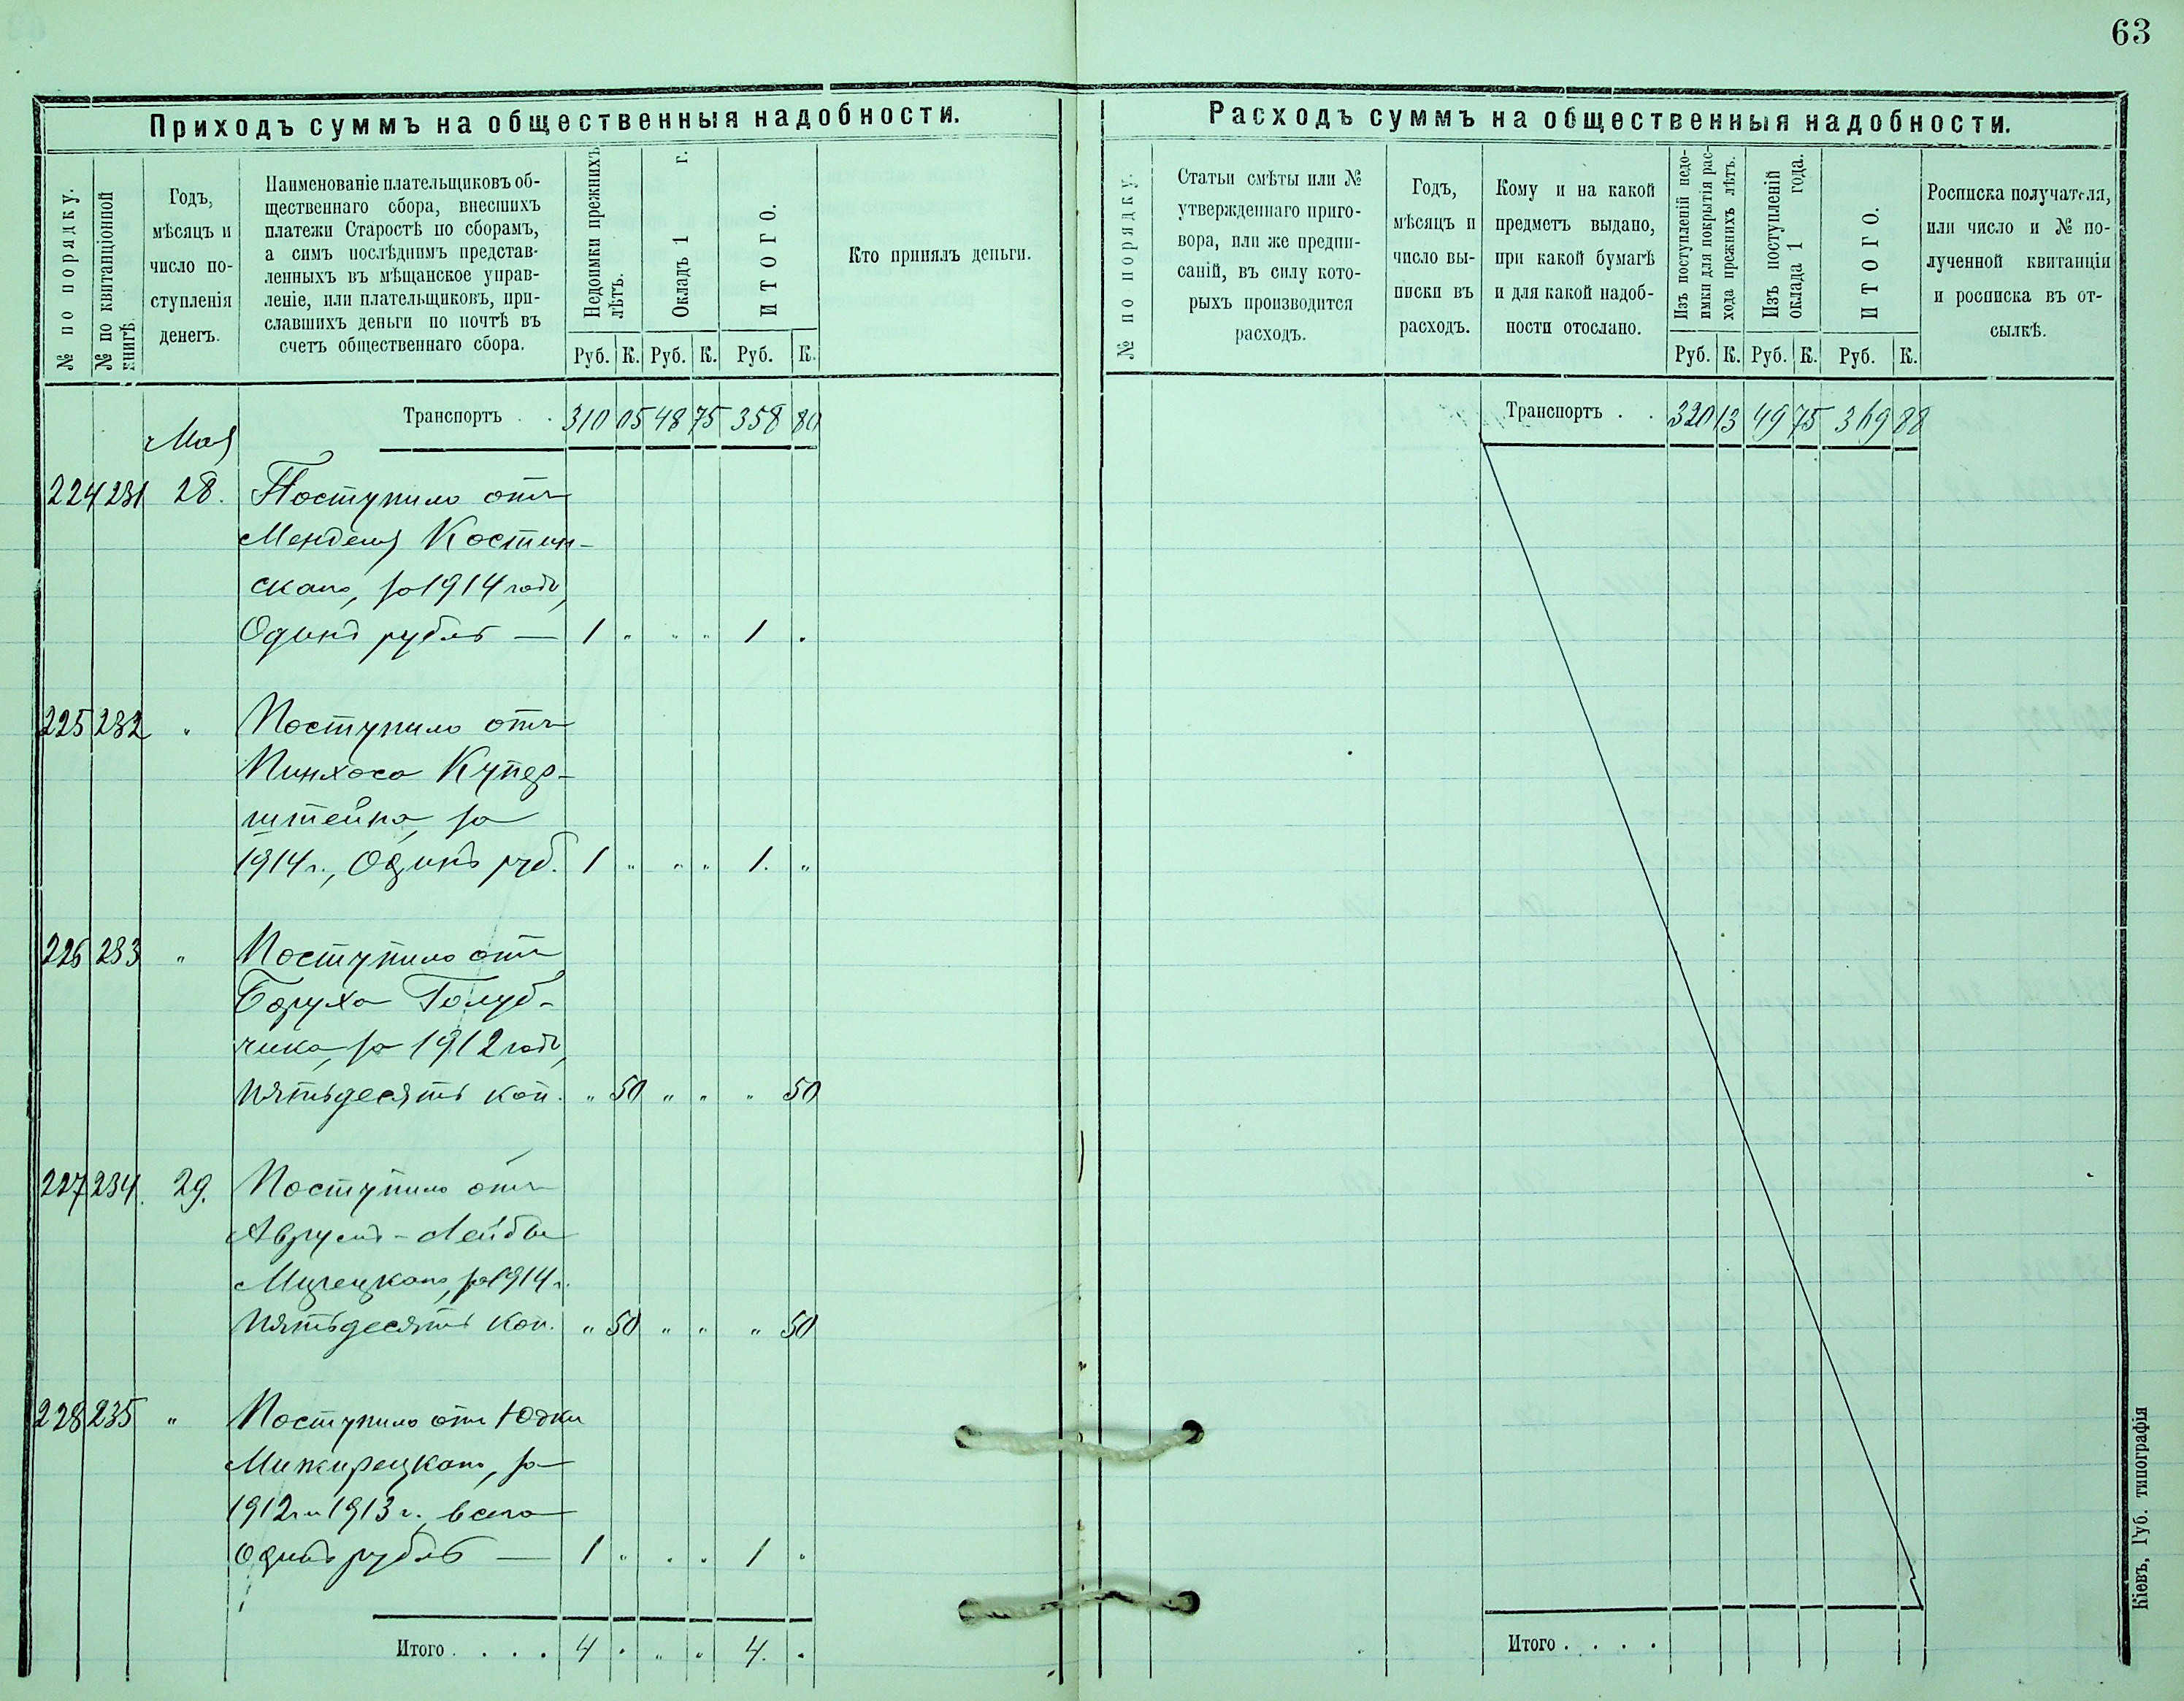 63
Приходъ суммъ на общественныя надобности.
№ по порядку.
№ по квитанціонной книгѣ.
Годъ,
мѣсяцъ и
число по-
ступленія
денегъ.
Наименованіе плательщиковъ об-
щественнаго сбора, внесшихъ
платежи Старостѣ по сборамъ,
а симъ послѣднимъ представ-
ленныхъ въ мѣщанское управ-
леніе, или плательщиковъ, при-
славшихъ деньги по почтѣ въ
счетъ общественнаго сбора.
Недоимки прежнихъ
лѣтъ.
Окладъ 1 г.
ИТОГО.
Руб. К. Руб. К. Руб. К.
Кто принялъ деньги.
Транспортъ . . 310 05 48 75 358 80
Мая
224 231 28. Поступило отъ
Менделя Костин-
скаго, за 1914 годъ,
Одинъ рубль — 1 " " " 1 "
225 232 " Поступило отъ
Пинхоса Купер-
штейна, за
1914 г., Одинъ руб. 1 " " " 1. "
226 233 " Поступило отъ
Боруха Голуб-
чика, за 1912 годъ,
пятьдесятъ коп. " 50 " " " 50
227 234. 29. Поступило отъ
Аврумъ-Лейбы
за 1914 г.
пятьдесятъ коп. " 50 " " " 50
228 235 " Поступило отъ Юдки
Мижирецкаго, за
1912 и 1913 г., всего
Одинъ рубль — 1 " " " 1 "
Итого . . . . 4 " " " 4. "
Расходъ суммъ на общественныя надобности.
№ по порядку.
Статьи смѣты или №
утвержденнаго приго-
вора, или же предпи-
саній, въ силу кото-
рыхъ производится
расходъ.
Годъ,
мѣсяцъ и
число вы-
писки въ
расходъ.
Кому и на какой
предметъ выдано,
при какой бумагѣ
и для какой надоб-
ности отослано.
Изъ поступленій недо-
имки для покрытія рас-
хода прежнихъ лѣтъ.
Изъ поступленій
оклада 1 года.
ИТОГО.
Руб. К. Руб. К. Руб. К.
Росписка получателя,
или число и № по-
лученной квитанціи
и росписка въ от-
сылкѣ.
Транспортъ . . 320 13 49 75 369 88
Итого . . . .
Кіевъ, Губ. типографія